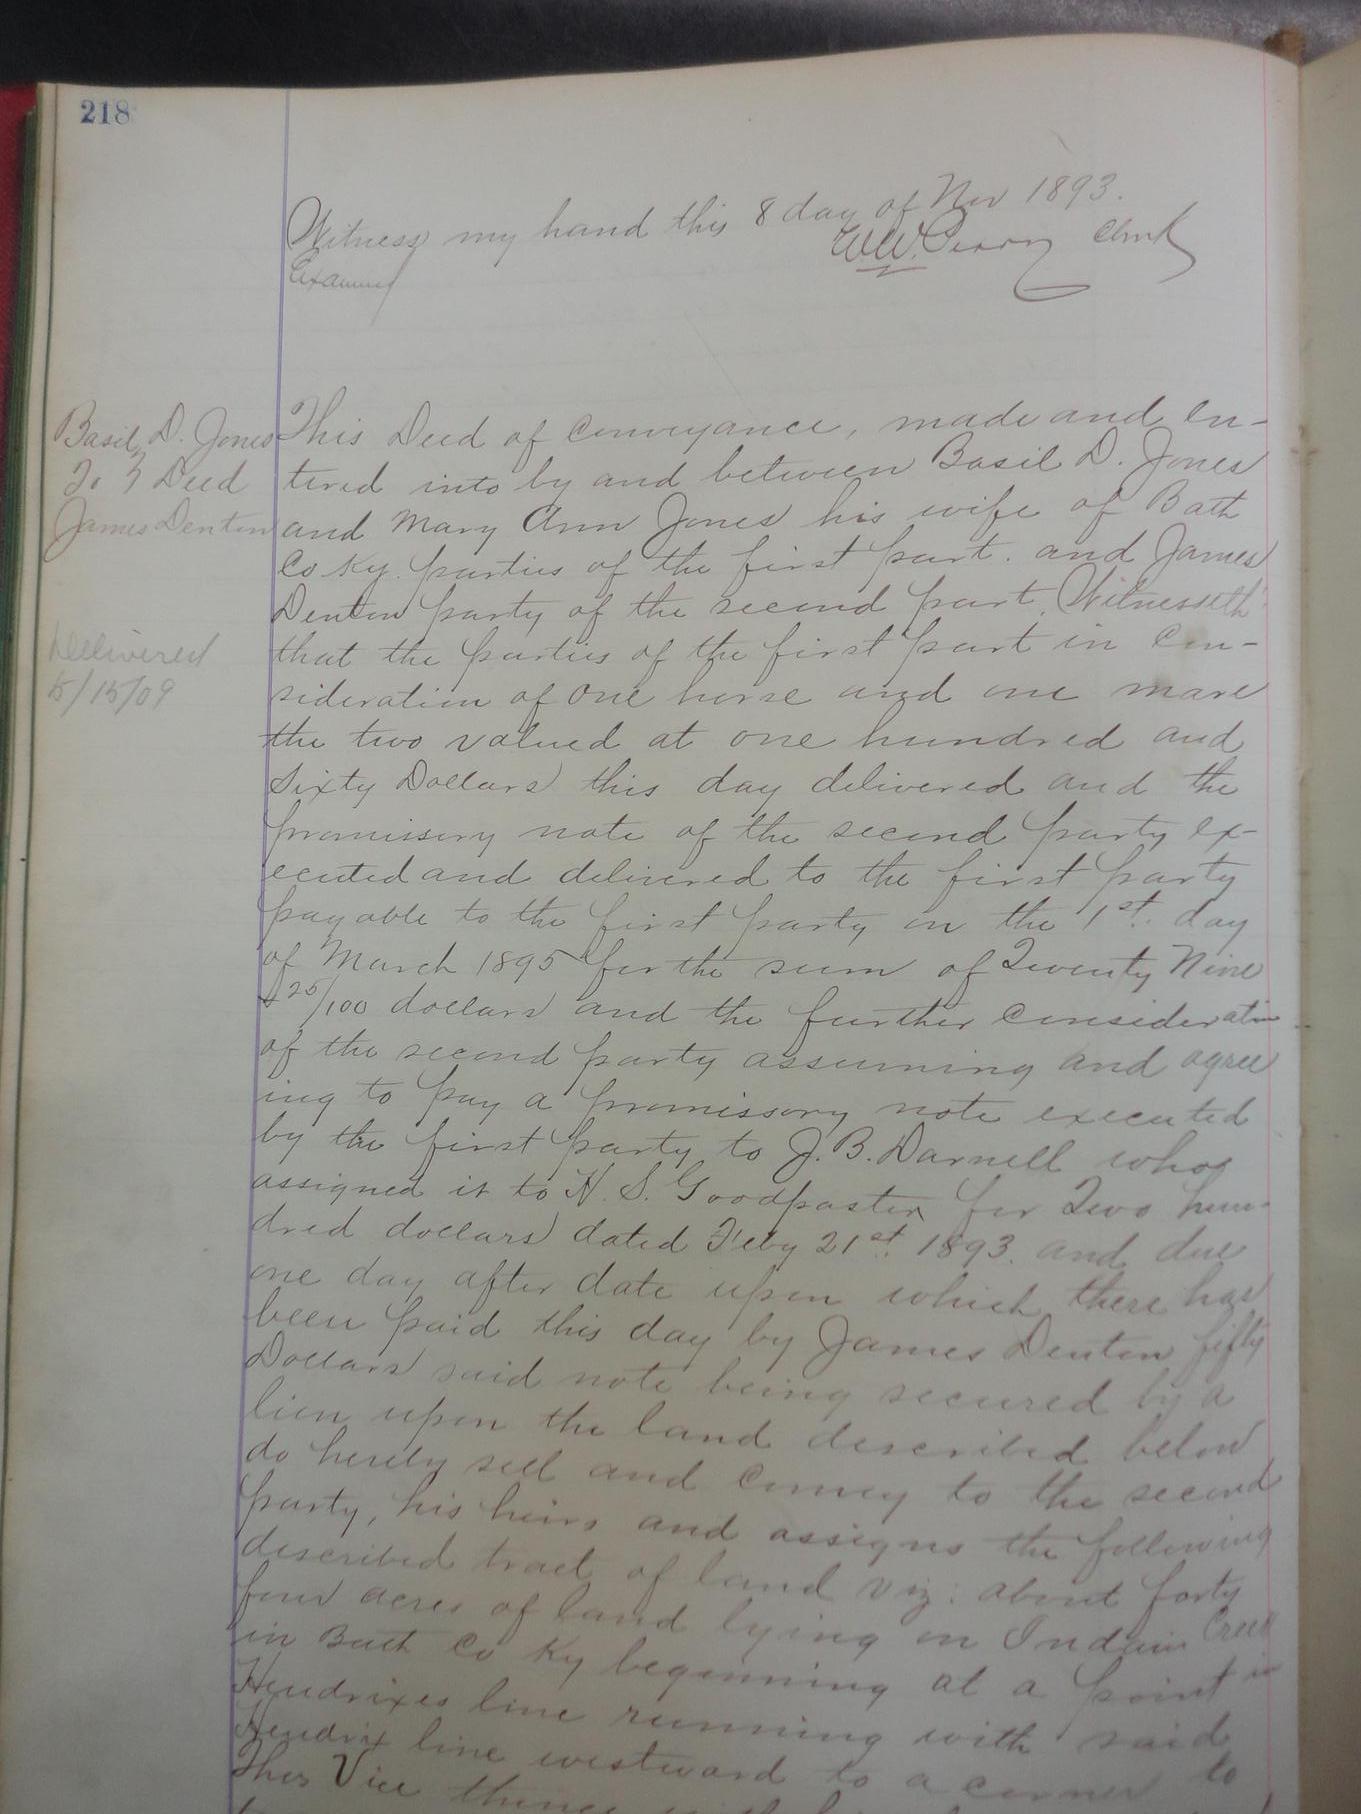 218
Witness my hand this 8 day of Nov 1893.
W.W. Perry Clerk
Examined
Basil D. Jones
To } Deed
James Denton
Delivered
5/15/09
This Deed of Conveyance, made and en-
tered into by and between Basil D. Jones
and Mary Ann Jones his wife of Bath
Co Ky. parties of the first part. and James
Denton party of the second part, Witnesseth
that the parties of the first part in Con-
sideration of one horse and one mare
the two valued at one hundred and
Sixty Dollars this day delivered and the
promissory note of the second party ex-
ecuted and delivered to the first party
payable to the first party on the 1st. day
of March 1895 for the sum of Twenty Nine
& 25/100 dollars and the further consideration
of the second party assuming and agree
ing to pay a promissory note executed
by the first party to J. B. Darnell who
assigned it to H. S. Goodpaster for Two hun-
dred dollars dated Feby 21st. 1893. and due
one day after date upon which there has
been paid this day by James Denton fifty
Dollars said note being secured by a
lien upon the land described below
do hereby sell and convey to the second
party, his heirs and assigns the following
described tract of land viz: about forty
four acres of land lying on Indain Creek
in Bath Co Ky beginning at a point in
Hendrixes line running with said
Hendrix line westward to a corner to
Thos Vice thence